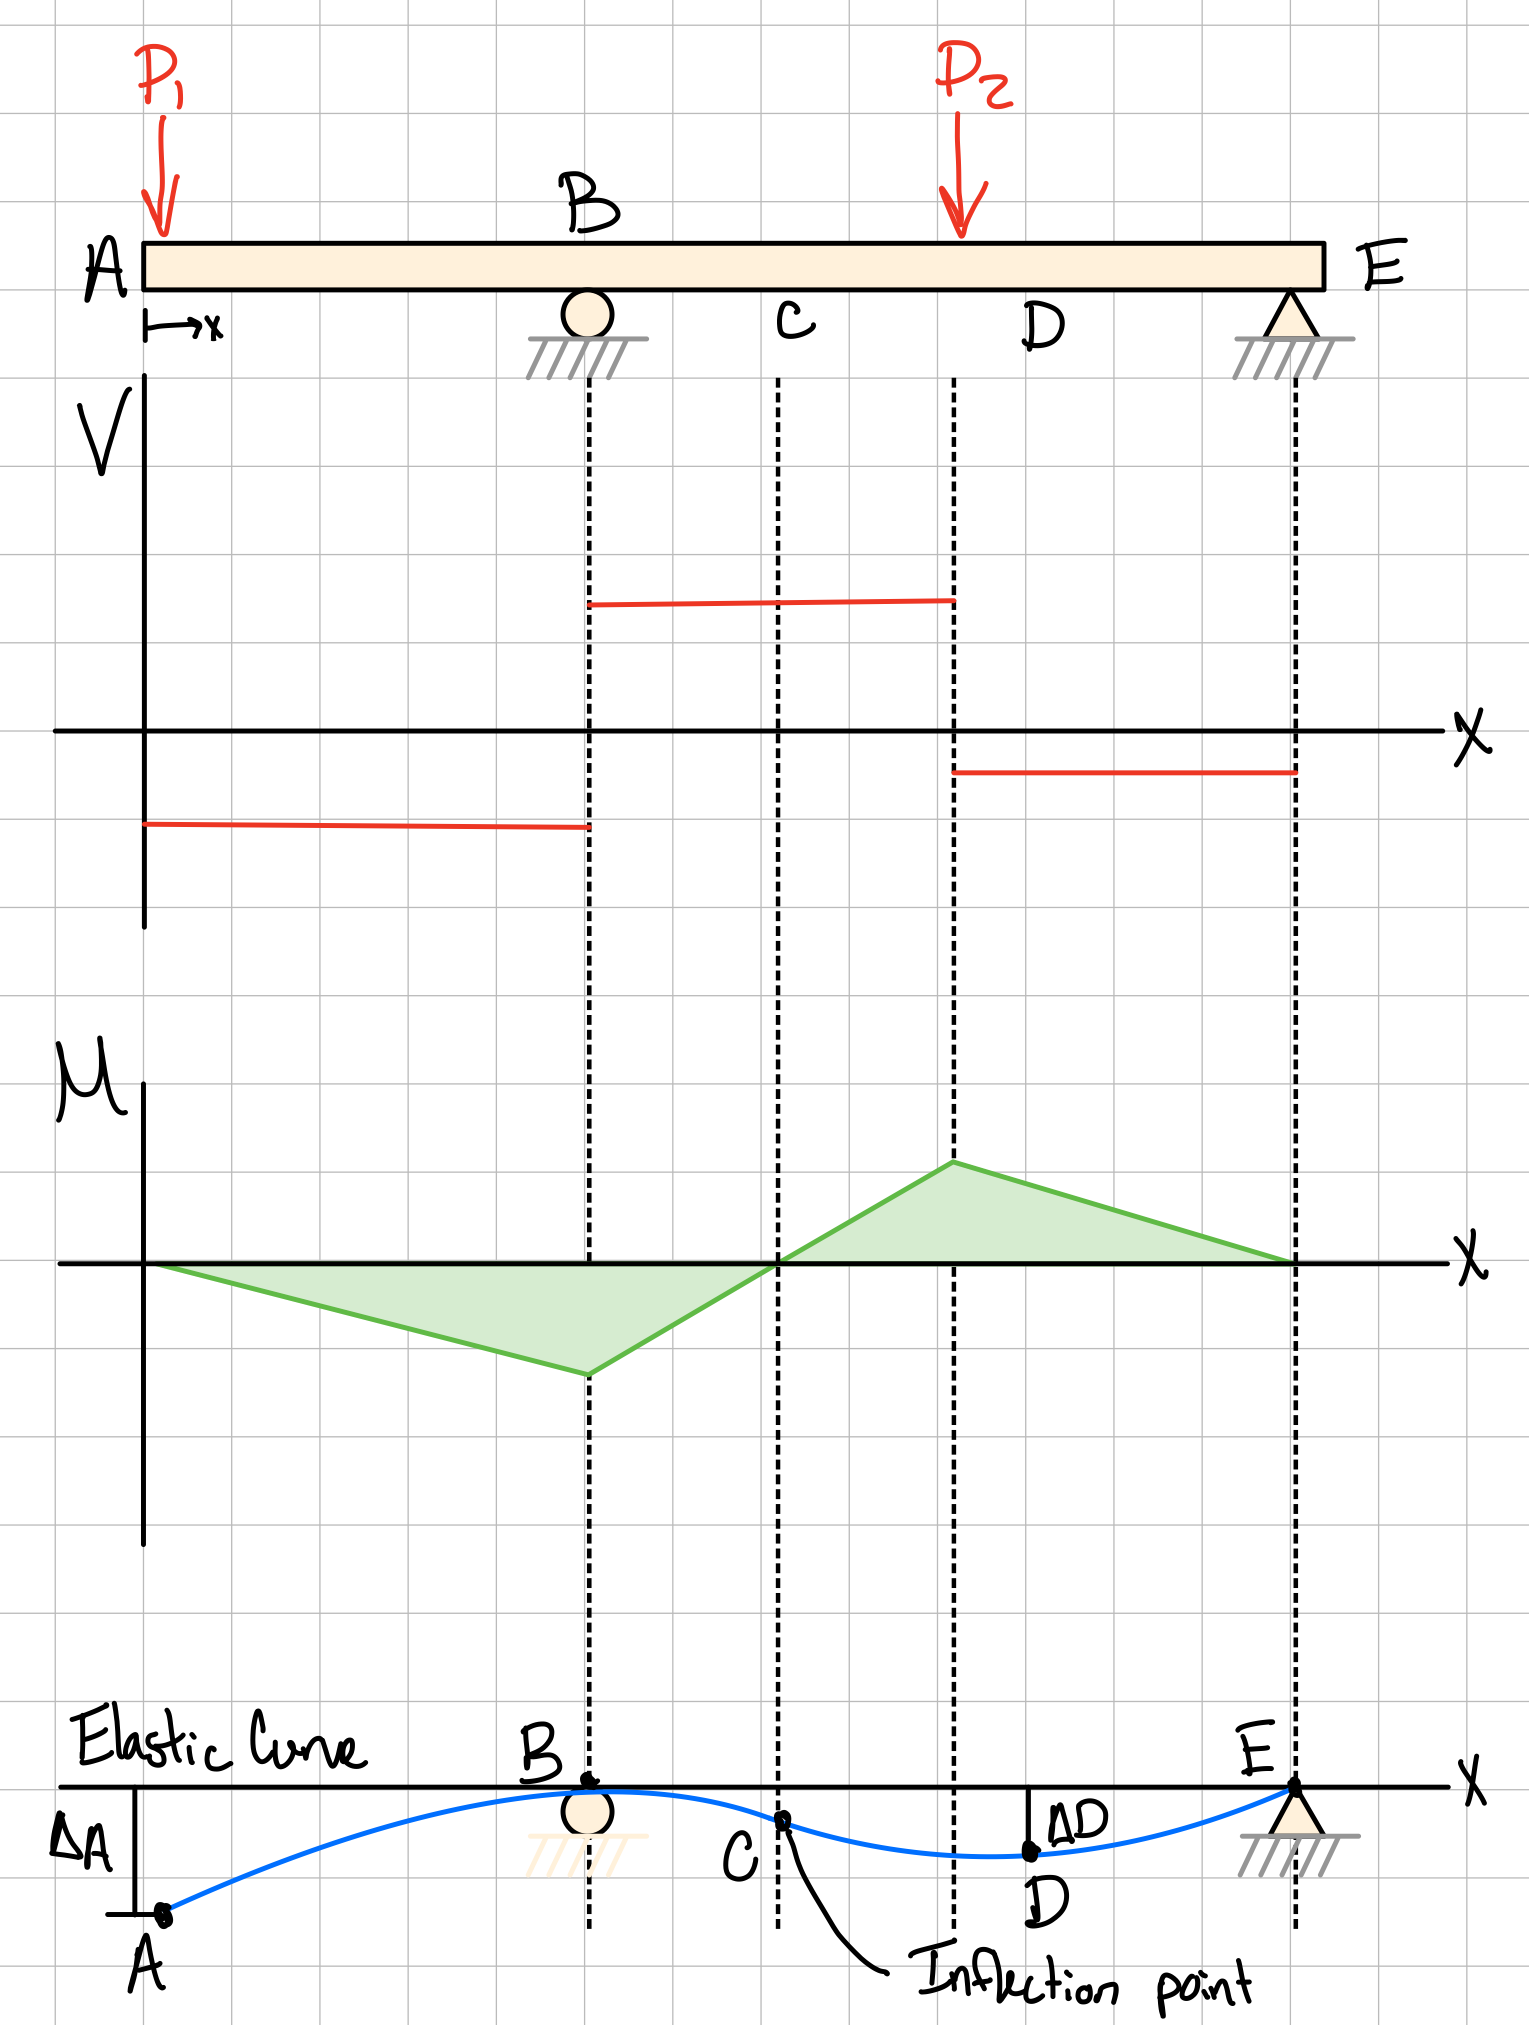 P₁ P₂
B
A E
x C D
V
X
M
X
Elastic Curve B E
X
ΔA ΔD
C
D
A
Inflection point